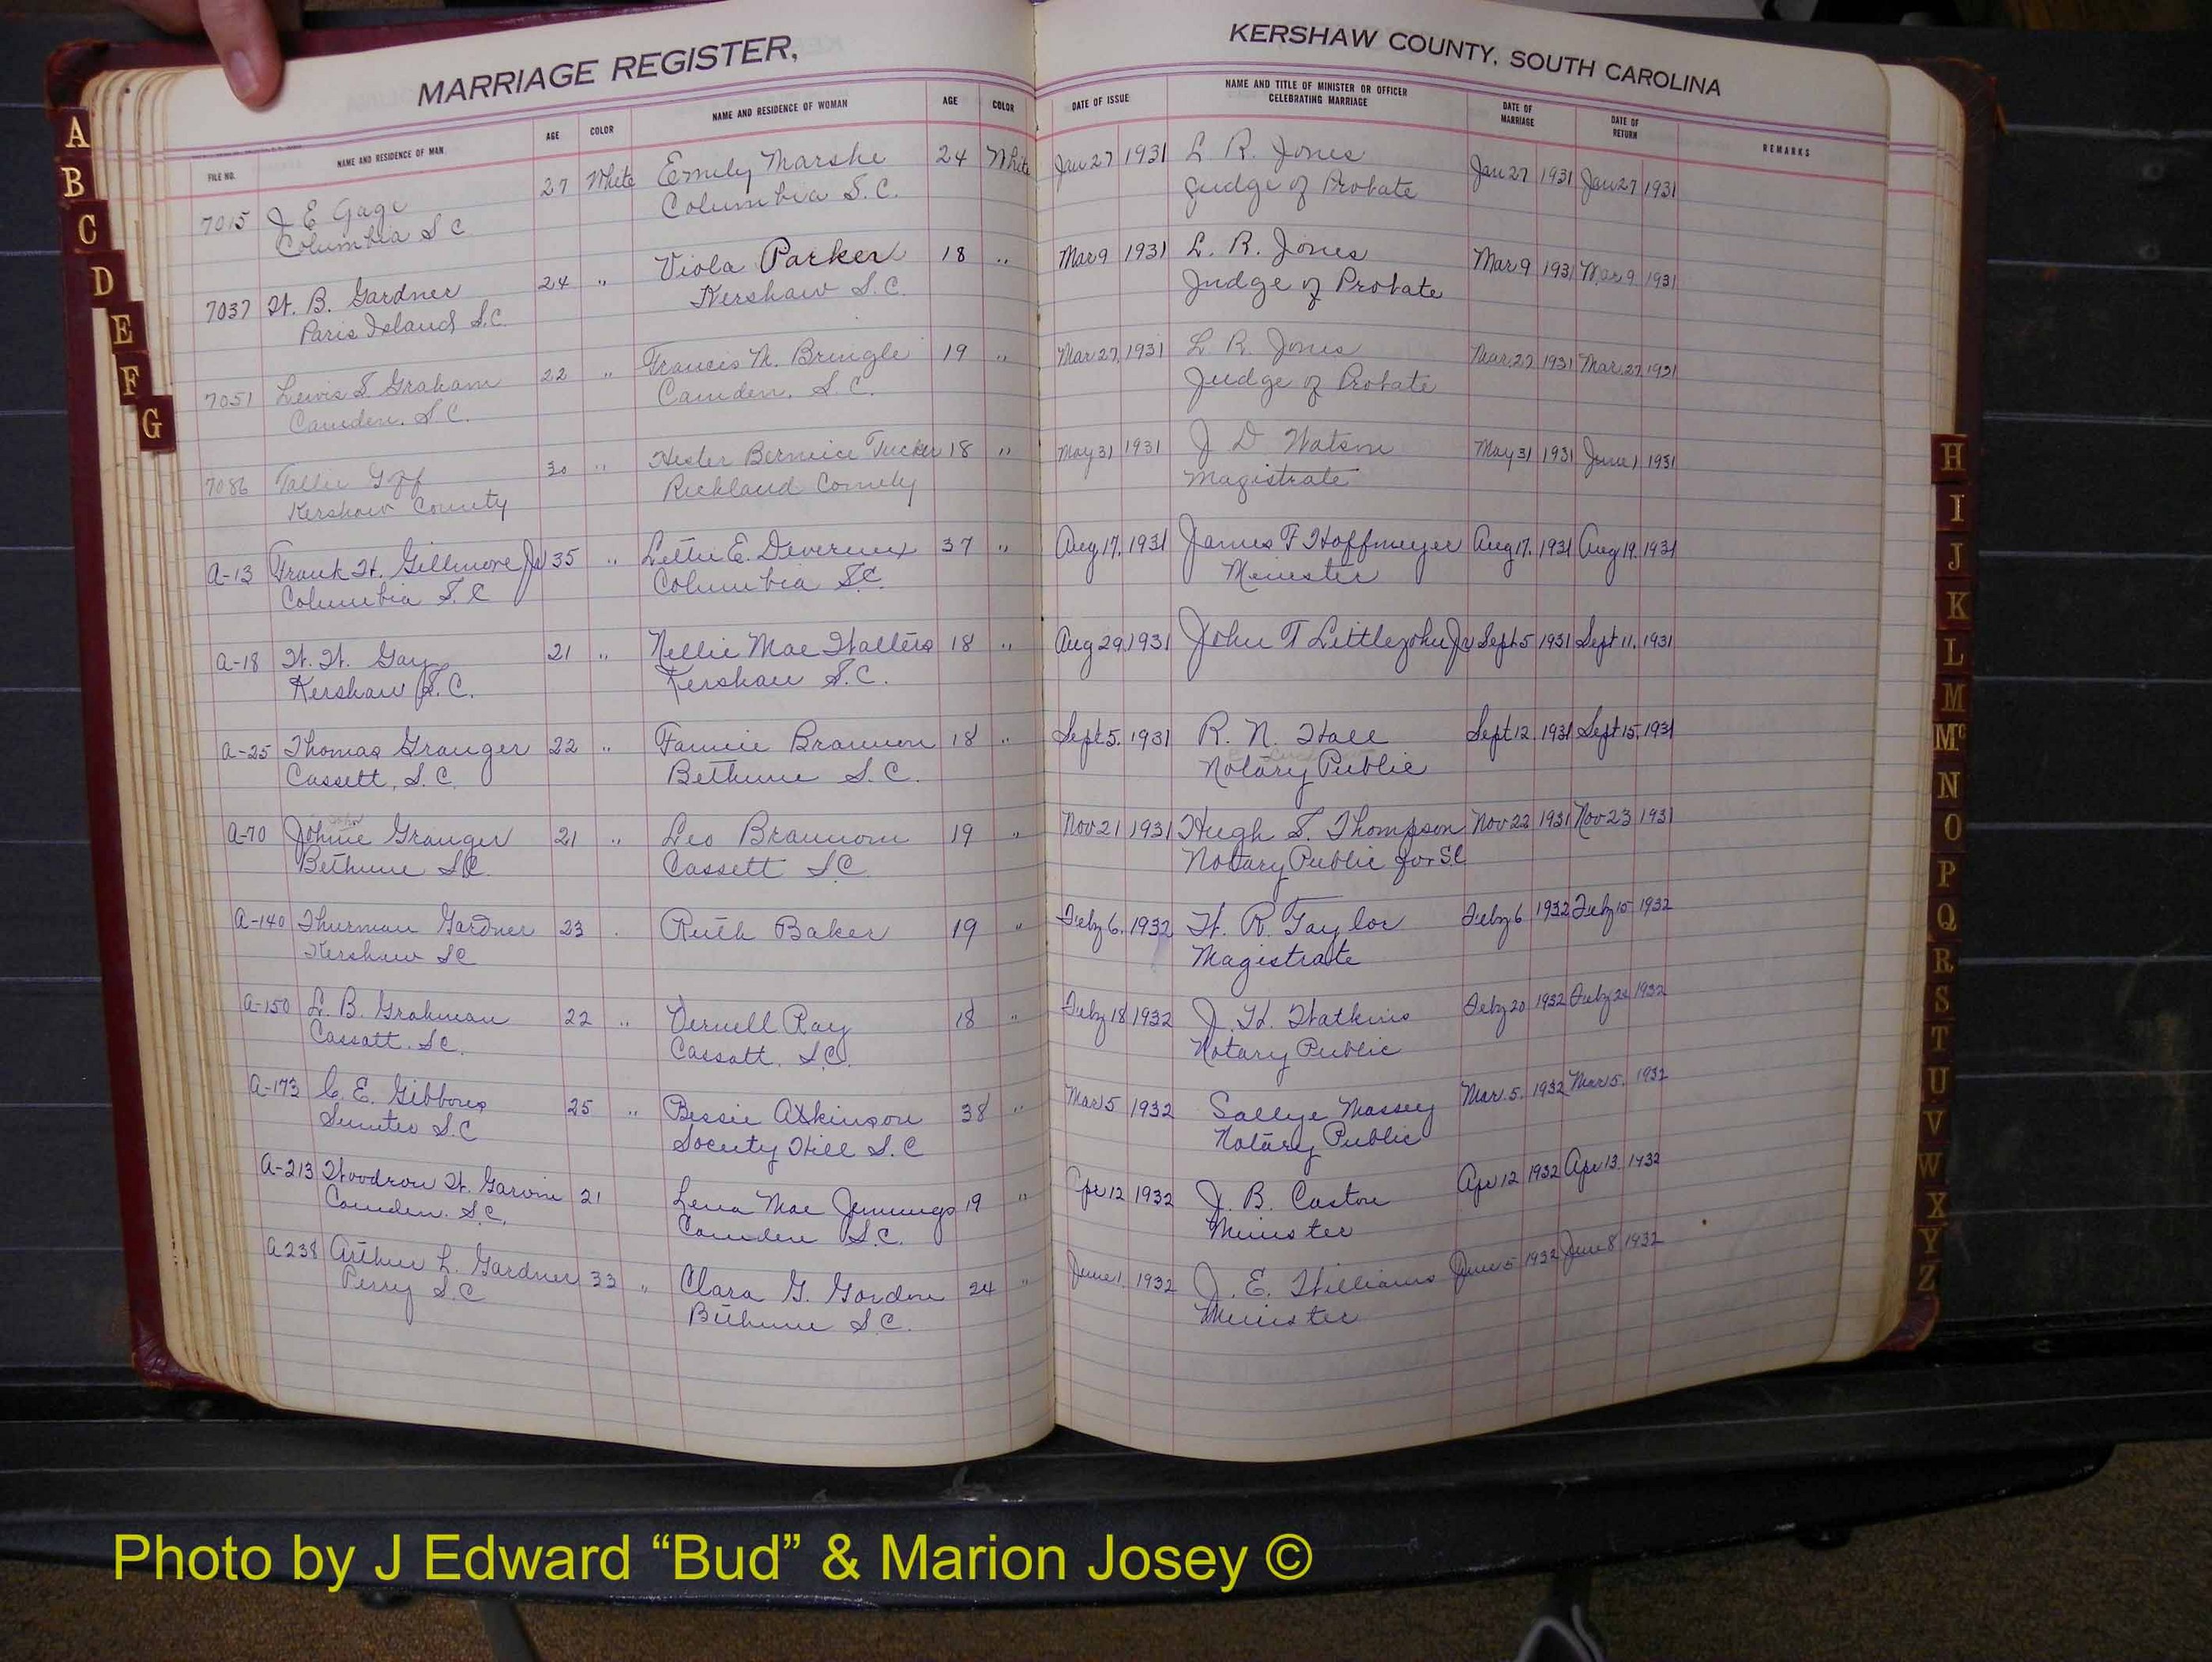 MARRIAGE REGISTER,
KERSHAW COUNTY, SOUTH CAROLINA
FILE NO. NAME AND RESIDENCE OF MAN AGE COLOR NAME AND RESIDENCE OF WOMAN AGE COLOR DATE OF ISSUE NAME AND TITLE OF MINISTER OR OFFICER CELEBRATING MARRIAGE DATE OF MARRIAGE DATE OF RETURN REMARKS
7015 J E Gage 27 White Emily Marshe 24 White Jan 27 1931 L R. Jones Jan 27 1931 Jan 27 1931
Columbia S C Columbia S.C. Judge of Probate
7037 H. B. Gardner 24 " Viola Parker 18 " Mar 9 1931 L. R. Jones Mar 9 1931 Mar 9 1931
Paris Island S.C. Kershaw S.C. Judge of Probate
7051 Lewis S. Graham 22 " Francis M. Bringle 19 " Mar 27, 1931 L R. Jones Mar 27 1931 Mar. 27 1931
Camden, S.C. Camden, S.C. Judge of Probate
7086 Tallie Goff 30 " Hester Bernice Tucker 18 " May 31 1931 J D Watson May 31 1931 June 1 1931
Kershaw County Richland County Magistrate
A-13 Frank H. Gillmore Jr 35 " Lettie E. Devereux 37 " Aug 17, 1931 James F Hoffmeyer Aug 17. 1931 Aug 19. 1931
Columbia S.C Columbia S.C. Minister
A-18 W. W. Gay 21 " Nellie Mae Walters 18 " Aug 29, 1931 John T Littlejohn Jr Sept 5 1931 Sept 11, 1931
Kershaw S.C. Kershaw S.C.
A-25 Thomas Granger 22 " Fannie Brannon 18 " Sept 5. 1931 R. N. Hall Sept 12 1931 Sept 15, 1931
Cassett, S.C. Bethune S.C. Notary Public
A-70 Johnie Granger 21 " Leo Brannom 19 " Nov 21 1931 Hugh S. Thompson Nov 22 1931 Nov 23 1931
Bethune S.C. Cassett S.C. Notary Public for SC
A-140 Thurman Gardner 23 Ruth Baker 19 " Feby 6. 1932 W. R Taylor Feby 6 1932 Feby 15 1932
Kershaw SC Magistrate
A-150 L. B. Grahman 22 " Vernell Ray 18 " Feby 18 1932 J. H. Watkins Feby 20 1932 Feby 1932
Cassatt. S.C. Cassatt. S.C. Notary Public
A-173 C. E. Gibbons 25 " Bessie Atkinson 38 " Mar 5 1932 Sallye Massey Mar. 5. 1932 Mar 5. 1932
Sumter S.C Society Hill S.C Notary Public
A-213 Woodrow W. Garvin 21 Lena Mae Jennings 19 " Apr 12 1932 J. B. Caston Apr 12 1932 Apr 13 1932
Camden. S.C. Camden S.C. Minister
A238 Arthur L. Gardner 33 " Clara G. Gordon 24 " June 1. 1932 J. E. Williams June 5 1932 June 8 1932
Perry S.C Bethune S.C. Minister
A
B
C
D
E
F
G
H
I
J
K
L
M
Mc
N
O
P
Q
R
S
T
U
V
W
X
Y
Z
Photo by J Edward “Bud” & Marion Josey ©